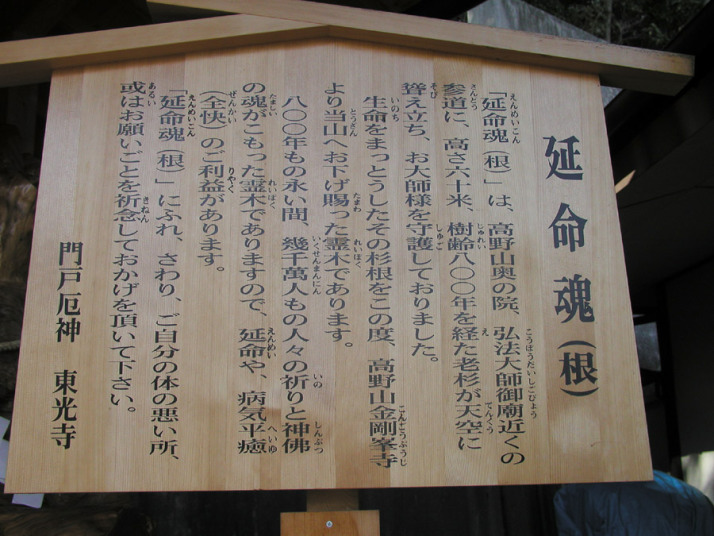 延命魂（根）
「延命魂（根）」は、高野山奥の院、弘法大師御廟近くの
参道に、高さ六十米、樹齢八〇〇年を経た老杉が天空に
聳え立ち、お大師様を守護しておりました。
生命をまっとうしたその杉根をこの度、高野山金剛峯寺
より当山へお下げ賜った霊木であります。
八〇〇年もの永い間、幾千萬人もの人々の祈りと神佛
の魂がこもった霊木でありますので、延命や、病気平癒
（全快）のご利益があります。
「延命魂（根）」にふれ、さわり、ご自分の体の悪い所、
或はお願いごとを祈念しておかげを頂いて下さい。
門戸厄神　東光寺